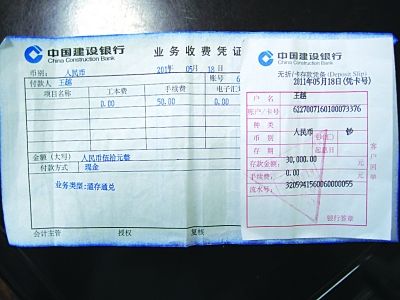 中国建设银行
China Construction Bank
业务收费凭证
币别: 人民币 2011年 05月 18日
付款人 王越 账号 6
项目名称 工本费 手续费 电子汇
0.00 50.00 0.00
金额(大写) 人民币伍拾元整
付款方式 现金
业务类型:通存通兑
会计主管 授权 复核
中国建设银行
China Construction Bank
无折/卡存款凭条 (Deposit Slip)
2011年05月18日(凭卡号)
户名 王越
帐户/卡号 6227007160100073376
种类
币别 人民币 钞(汇) 钞
存期 起息日
存款金额: 30,000.00 元
手续费: 0.00 元
流水号: 3205941560060000055
银行签章
客户回单